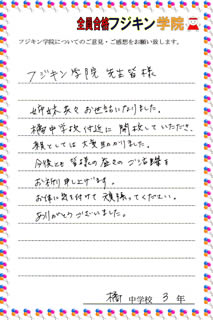 全員合格フジキン学院
フジキン学院についてのご意見・ご感想をお願い致します。
フジキン学院 先生皆様
姉妹共々お世話になりました。
橘中学校付近に開校していただき、
親としては大変助かりました。
今後とも皆様の益々のご活躍を
お祈り申し上げます。
お体に気を付けて頑張ってください。
ありがとうございました。
橘 中学校 3 年